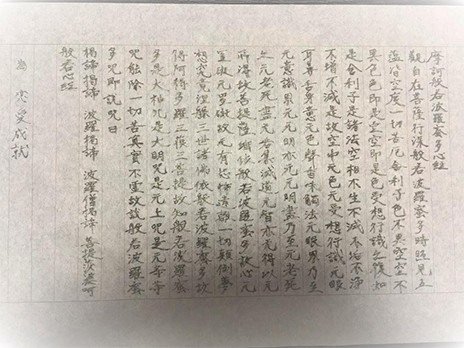 摩訶般若波羅蜜多心経
観自在菩薩行深般若波羅蜜多時照見五
蘊皆空度一切苦厄舎利子色不異空空不
異色色即是空空即是色受想行識亦復如
是舎利子是諸法空相不生不滅不垢不浄
不増不減是故空中无色无受想行識无眼
耳鼻舌身意无色声香味触法无眼界乃至
无意識界无无明亦无无明盡乃至无老死
亦无老死盡无苦集滅道无智亦无得以无
所得故菩提薩埵依般若波羅蜜多故心无
罣礙无罣礙故无有恐怖遠離一切顛倒夢
想究竟涅槃三世諸佛依般若波羅蜜多故
得阿耨多羅三藐三菩提故知般若波羅蜜
多是大神咒是大明咒是无上咒是无等等
咒能除一切苦真実不虚故説般若波羅蜜
多咒即説咒曰
掲諦 掲諦 波羅掲諦 波羅僧掲諦 菩提薩婆訶
般若心経
為 成就